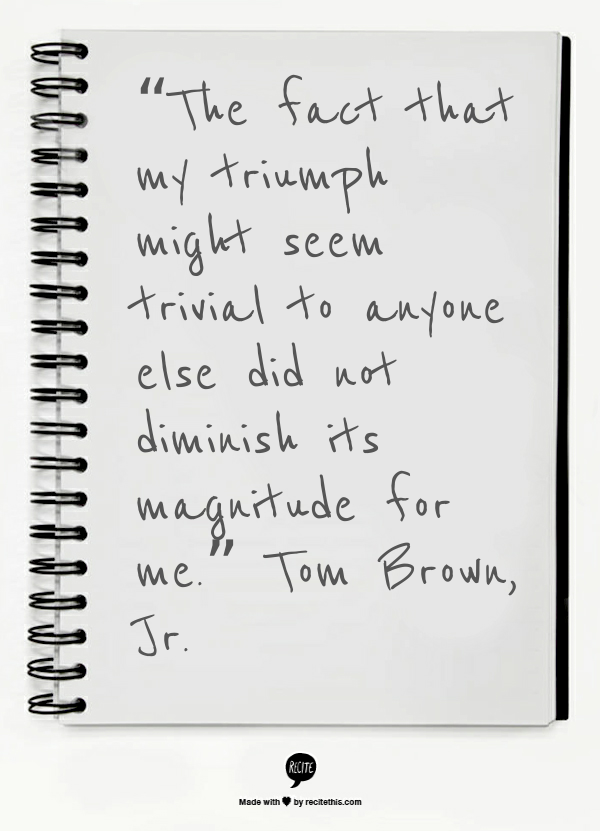 “The fact that
my triumph
might seem
trivial to anyone
else did not
diminish its
magnitude for
me.” Tom Brown,
Jr.
RECITE
Made with ♥ by recitethis.com